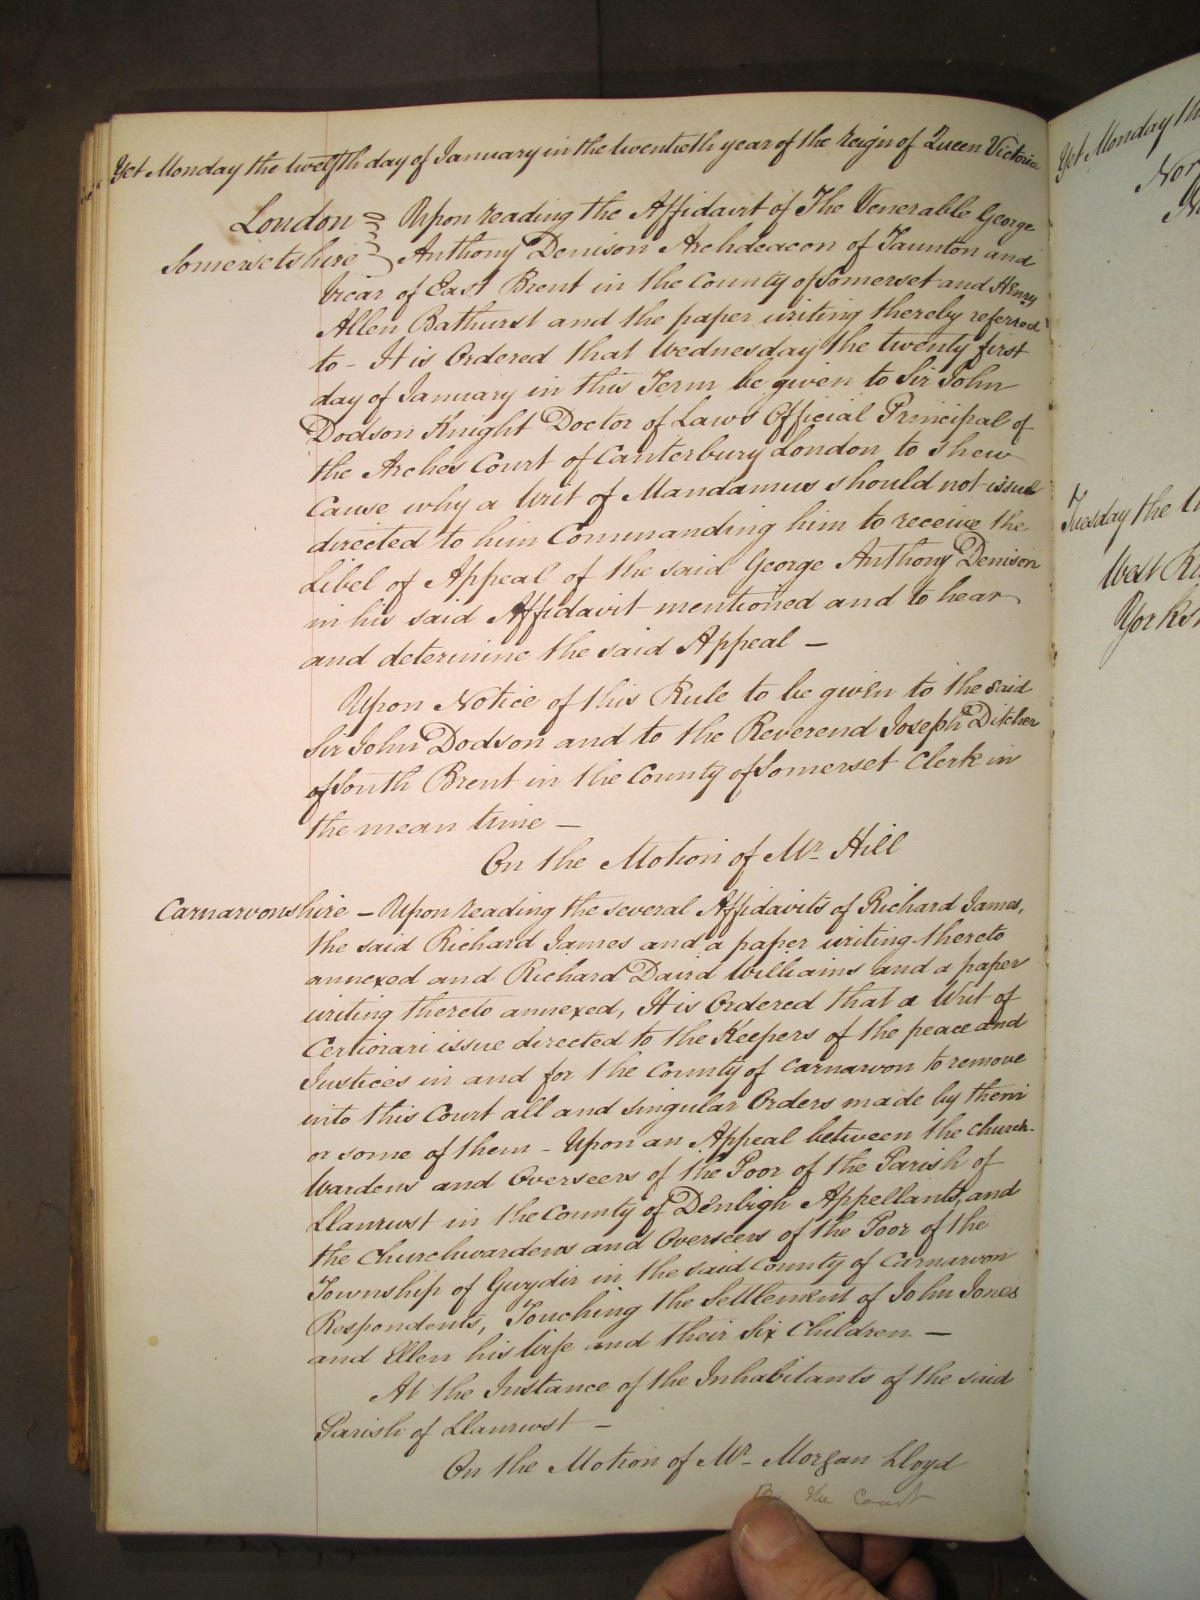 Yet Monday the twelfth day of January in the twentieth year of the Reign of Queen Victoria
London Upon reading the Affidavit of The Venerable George
Somersetshire Anthony Denison Archdeacon of Taunton and
Vicar of East Brent in the County of Somerset and Henry
Allen Bathurst and the paper writing thereby referred
to - It is Ordered that Wednesday the twenty first
day of January in this Term be given to Sir John
Dodson Knight Doctor of Laws Official Principal of
the Arches Court of Canterbury London to shew
Cause why a Writ of Mandamus should not issue
directed to him Commanding him to receive the
Libel of Appeal of the said George Anthony Denison
in his said Affidavit mentioned and to hear
and determine the said Appeal —
Upon Notice of this Rule to be given to the said
Sir John Dodson and to the Reverend Joseph Ditcher
of South Brent in the County of Somerset Clerk in
the mean time —
On the Motion of Mr. Hill
Carnarvonshire — Upon reading the several Affidavits of Richard James,
the said Richard James and a paper writing thereto
annexed and Richard David Williams and a paper
writing thereto annexed, It is Ordered that a Writ of
Certiorari issue directed to the Keepers of the peace and
Justices in and for the County of Carnarvon to remove
into this Court all and singular Orders made by them
or some of them - Upon an Appeal between the Church-
wardens and Overseers of the Poor of the Parish of
Llanrwst in the County of Denbigh Appellants, and
the Churchwardens and Overseers of the Poor of the
Township of Gwydir in the said County of Carnarvon
Respondents, Touching the Settlement of John Jones
and Ellen his Wife and their Six Children. —
At the Instance of the Inhabitants of the said
Parish of Llanrwst —
On the Motion of Mr. Morgan Lloyd
By the Court
Yet Monday the
Tuesday the
West